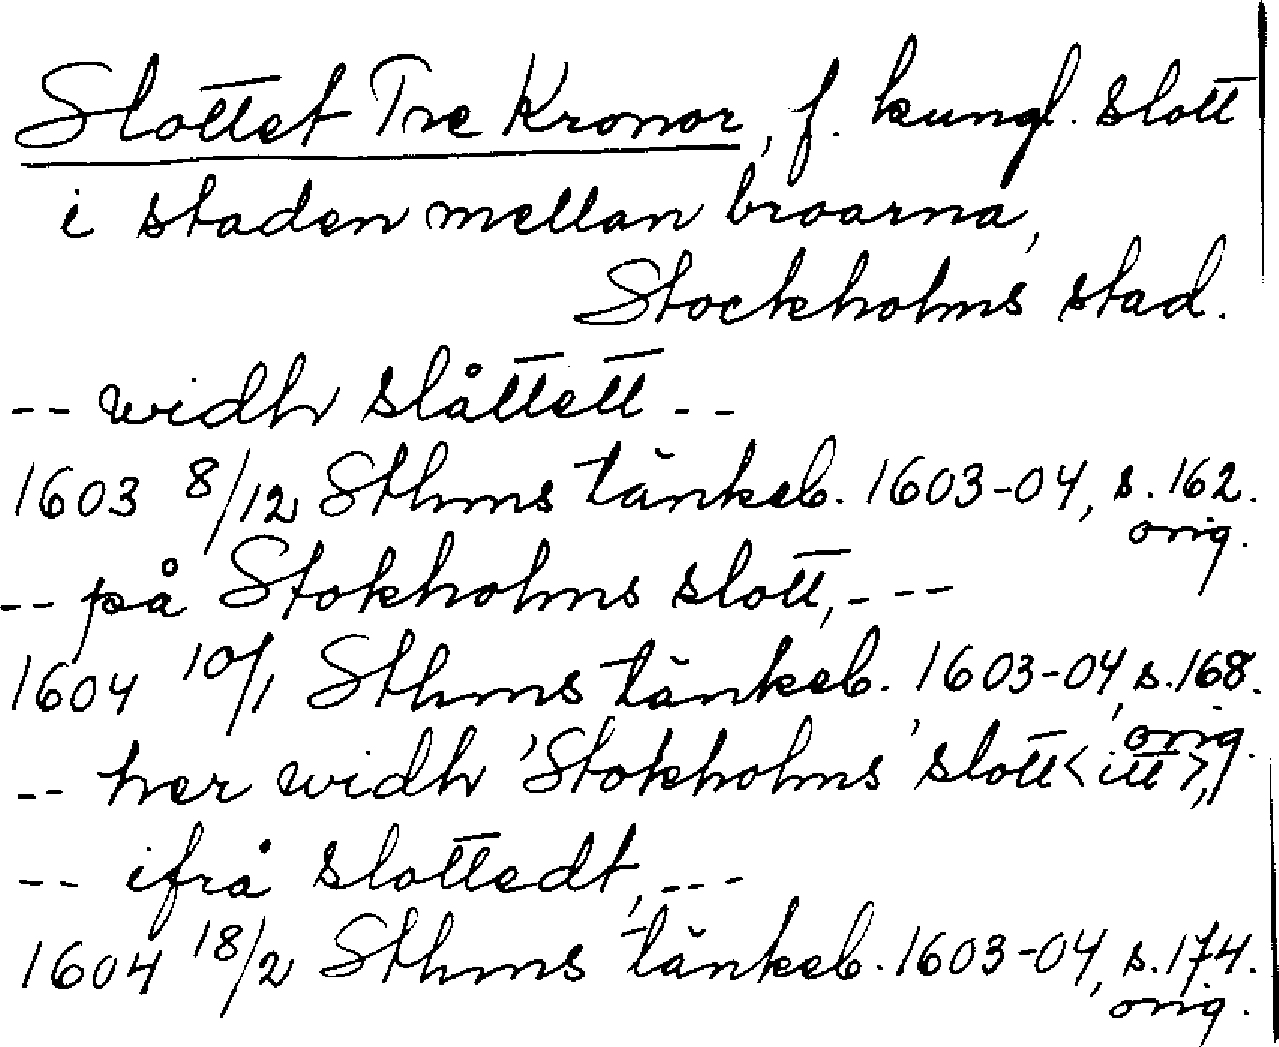 Slottet Tre Kronor, f. kungl. slott
i staden mellan broarna,
Stockholms stad.
-- widh slåttett --
1603 8/12 Sthms tänkeb. 1603-04, s. 162.
orig.
-- på Stokholms slott, ---
1604 10/1 Sthms tänkeb. 1603-04, s. 168.
orig.
-- her widh 'Stokholms' slott<itt>,
-- ifrå slottedt, ---
1604 18/2 Sthms tänkeb. 1603-04, s. 174.
orig.